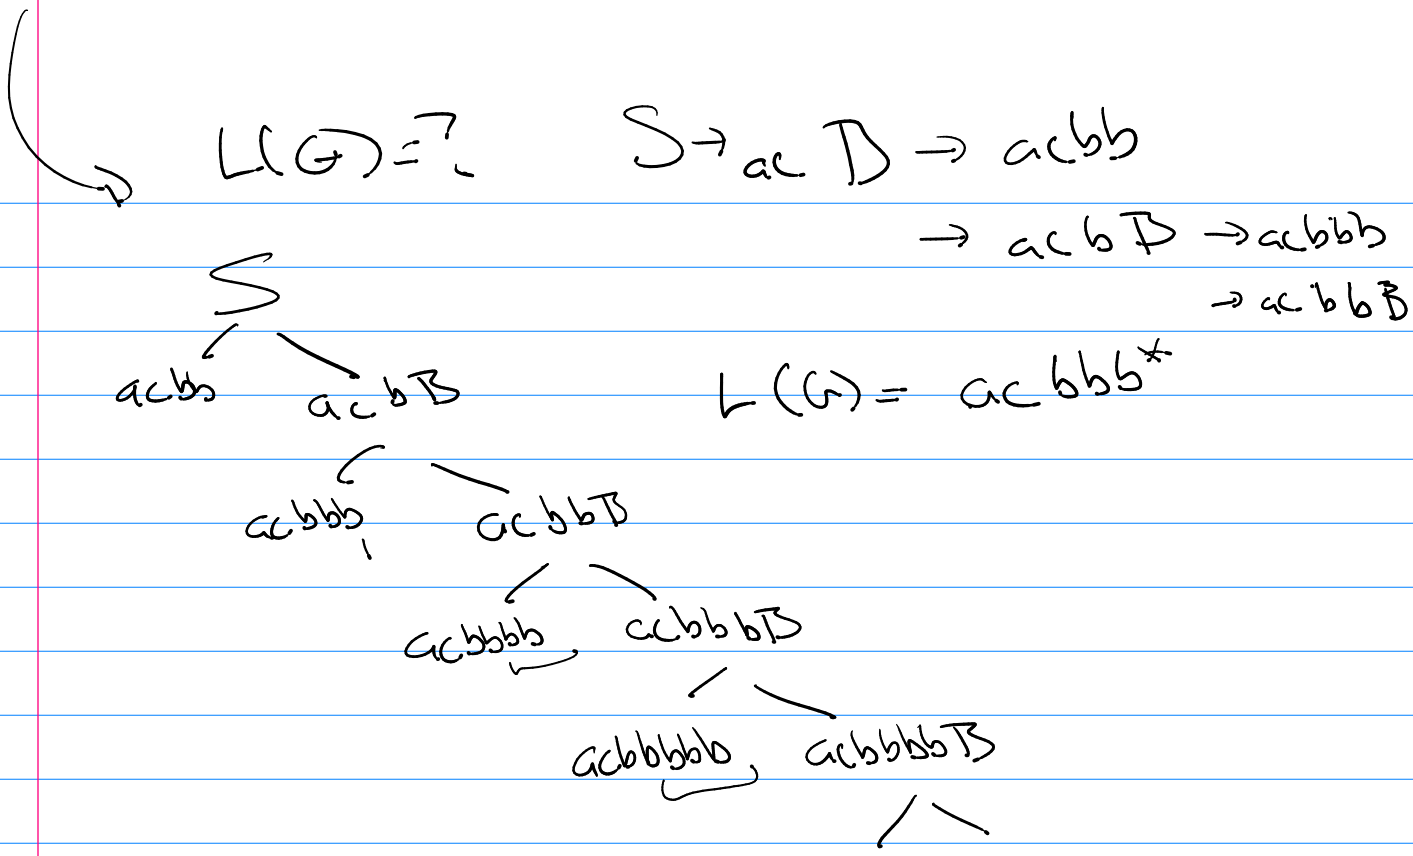 L(G)=? S→acB → acbb
→ acbB → acbbb
→ acbbB
S
acbb acbB
L(G) = acbbb*
acbbb acbbB
acbbbb acbbbB
acbbbbb acbbbbB